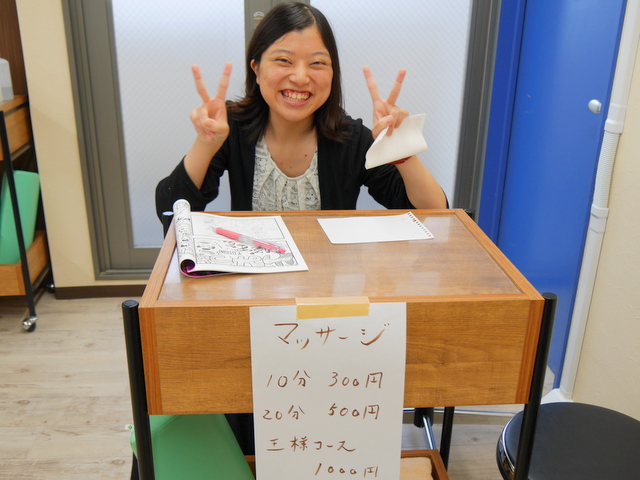 マッサージ
10分 300円
20分 500円
王様コース
1000円